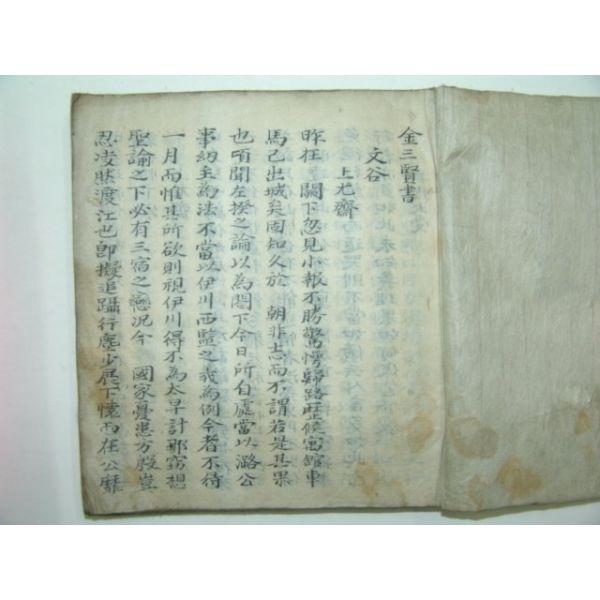 金三賢書
文谷
上尤齋
昨在 闕下忽見小報不勝驚愕歸路歷候寓舘車
馬已出城矣固知久於 朝非志而不謂若是甚果
也頃聞左揆之論以為閤下今日所自處當以潞公
事幼主為法不當以伊川西監之義為例今者不待
一月而惟其所欲則視伊川得不為太早計耶窃想
聖諭之下必有三宿之戀況今 國家憂患方殷豈
忍凌賍渡江也卽擬追躡行塵少展下懷而在公靡